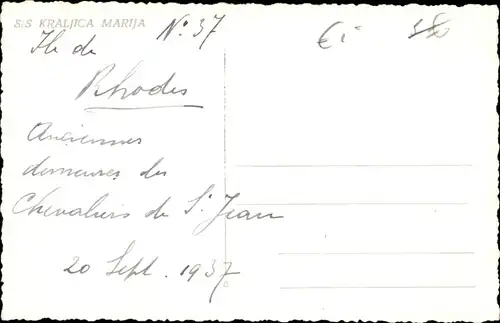 S/S KRALJICA MARIJA
N° 37
Ile de
Rhodes
Anciennes
demeures des
Chevaliers de St Jean
20 Sept. 1937